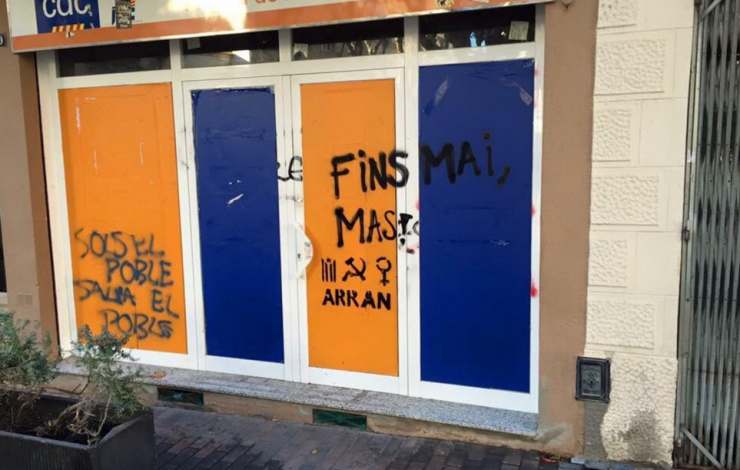 cdc
FINS MAI,
MAS
ARRAN
SOLS EL
POBLE
SALVA EL
POBLE